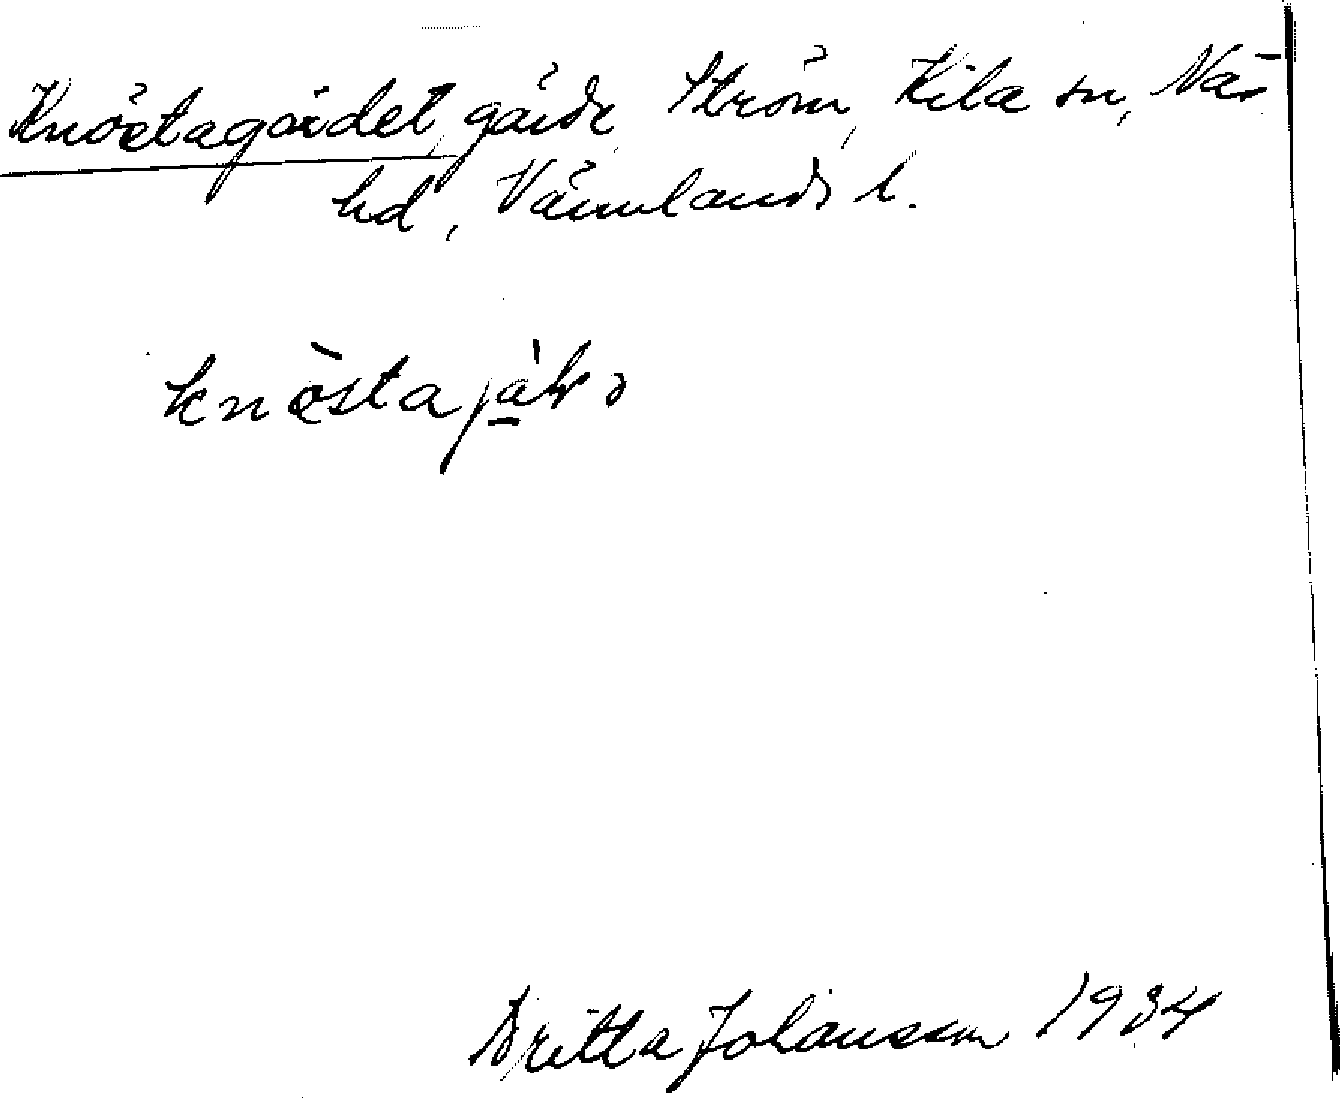 Knöstagärdet, gärde, Ström, Kila sn, Näs
hd, Värmlands l.
knöstajäḷə
Britta Johansson 1934